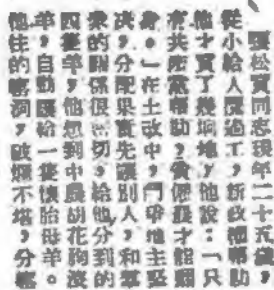 張松實同志現年二十五歲，
從小給人攬過工，新政權幫助
他才買了幾垧地，他說：「只
有共產黨幫助，貧僱農才能翻
身。」在土改中，鬥爭地主堅
決，分配果實先讓別人，和羣
衆的關係很密切，給他分到的
四隻羊，他想到中農胡花狗沒
羊，自動讓給一隻懷胎母羊。
他住的窰洞，破爛不堪，分窰